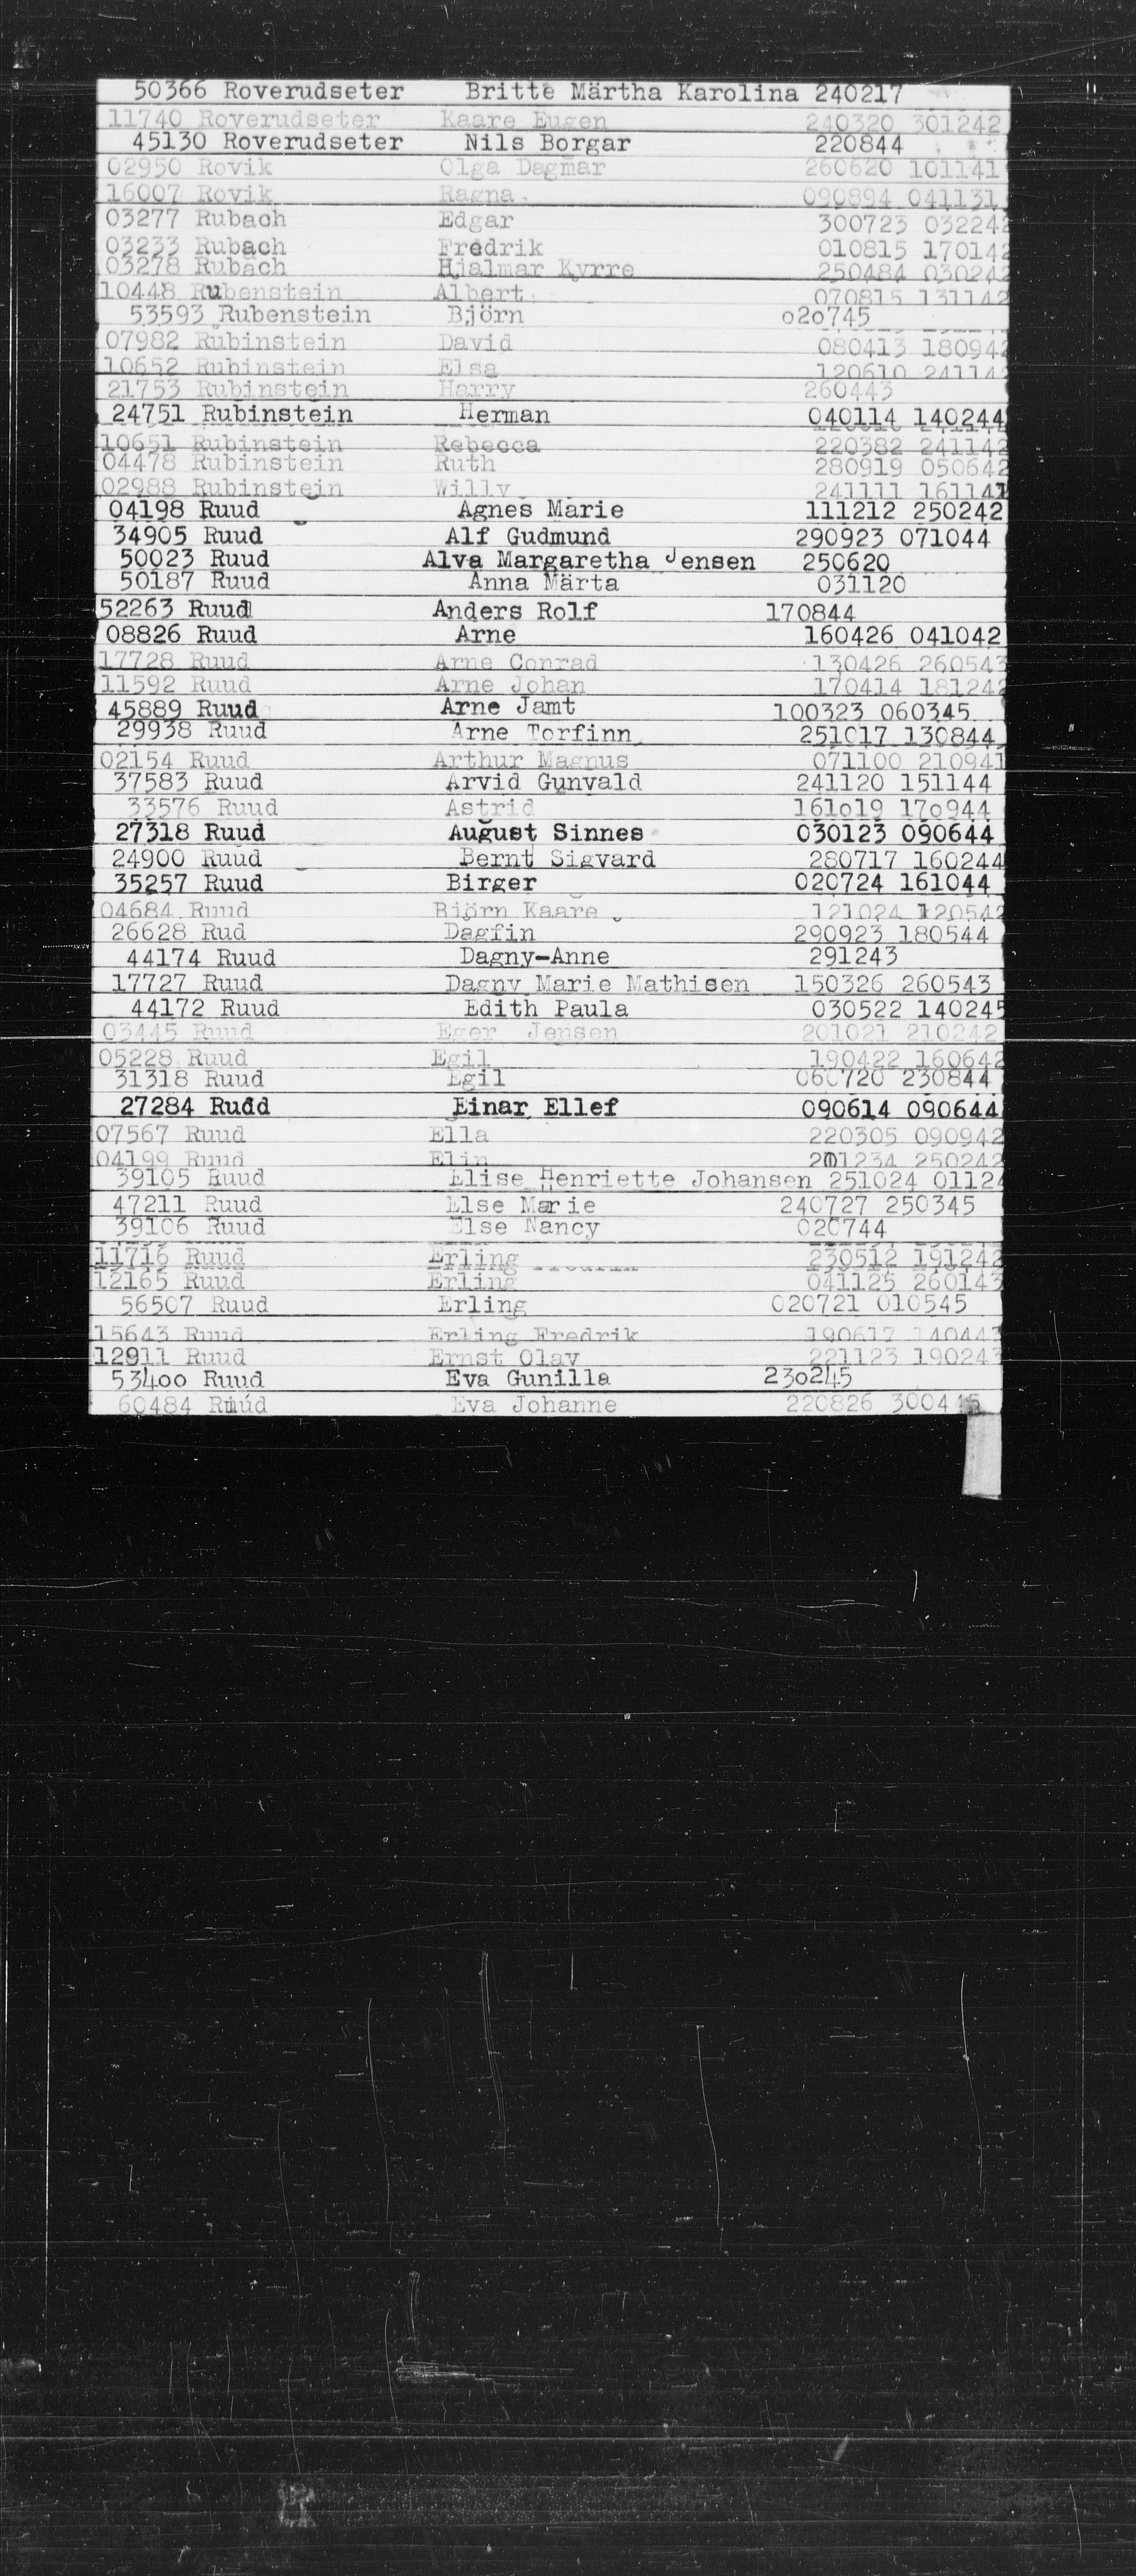 50366 Roverudseter Britte Märtha Karolina 240217
11740 Roverudseter Kaare Eugen 240320 301242
45130 Roverudseter Nils Borgar 220844
02950 Rovik Olga Dagmar 260620 101141
16007 Rovik Ragna 090894 041131
03277 Rubach Edgar 300723 032242
03233 Rubach Fredrik 010815 170142
03278 Rubach Hjalmar Kyrre 250484 030242
10448 Rubenstein Albert 070815 131142
53593 Rubenstein Björn 020745
07982 Rubinstein David 080413 180942
10652 Rubinstein Elsa 120610 241142
21753 Rubinstein Harry 260443
24751 Rubinstein Herman 040114 140244
10651 Rubinstein Rebecca 220382 241142
04478 Rubinstein Ruth 280919 050642
02988 Rubinstein Willy 241111 161141
04198 Ruud Agnes Marie 111212 250242
34905 Ruud Alf Gudmund 290923 071044
50023 Ruud Alva Margaretha Jensen 250620
50187 Ruud Anna Märta 031120
52263 Ruud Anders Rolf 170844
08826 Ruud Arne 160426 041042
17728 Ruud Arne Conrad 130426 260543
11592 Ruud Arne Johan 170414 181242
45889 Ruud Arne Jamt 100323 060345
29938 Ruud Arne Torfinn 251017 130844
02154 Ruud Arthur Magnus 071100 210941
37583 Ruud Arvid Gunvald 241120 151144
33576 Ruud Astrid 161019 170944
27318 Ruud August Sinnes 030123 090644
24900 Ruud Bernt Sigvard 280717 160244
35257 Ruud Birger 020724 161044
04684 Ruud Björn Kaare 121024 120542
26628 Rud Dagfin 290923 180544
44174 Ruud Dagny-Anne 291243
17727 Ruud Dagny Marie Mathisen 150326 260543
44172 Ruud Edith Paula 030522 140245
03445 Ruud Eger Jensen 201021 210242
05228 Ruud Egil 190422 160642
31318 Ruud Egil 060720 230844
27284 Rudd Einar Ellef 090614 090644
07567 Ruud Ella 220305 090942
04199 Ruud Elin 201234 250242
39105 Ruud Elise Henriette Johansen 251024 01124
47211 Ruud Else Marie 240727 250345
39106 Ruud Else Nancy 020744
11716 Ruud Erling 230512 191242
12165 Ruud Erling 041125 260143
56507 Ruud Erling 020721 010545
15643 Ruud Erling Fredrik 190617 140443
12911 Ruud Ernst Olav 221123 190243
53400 Ruud Eva Gunilla 230245
60484 Ruud Eva Johanne 220826 300445